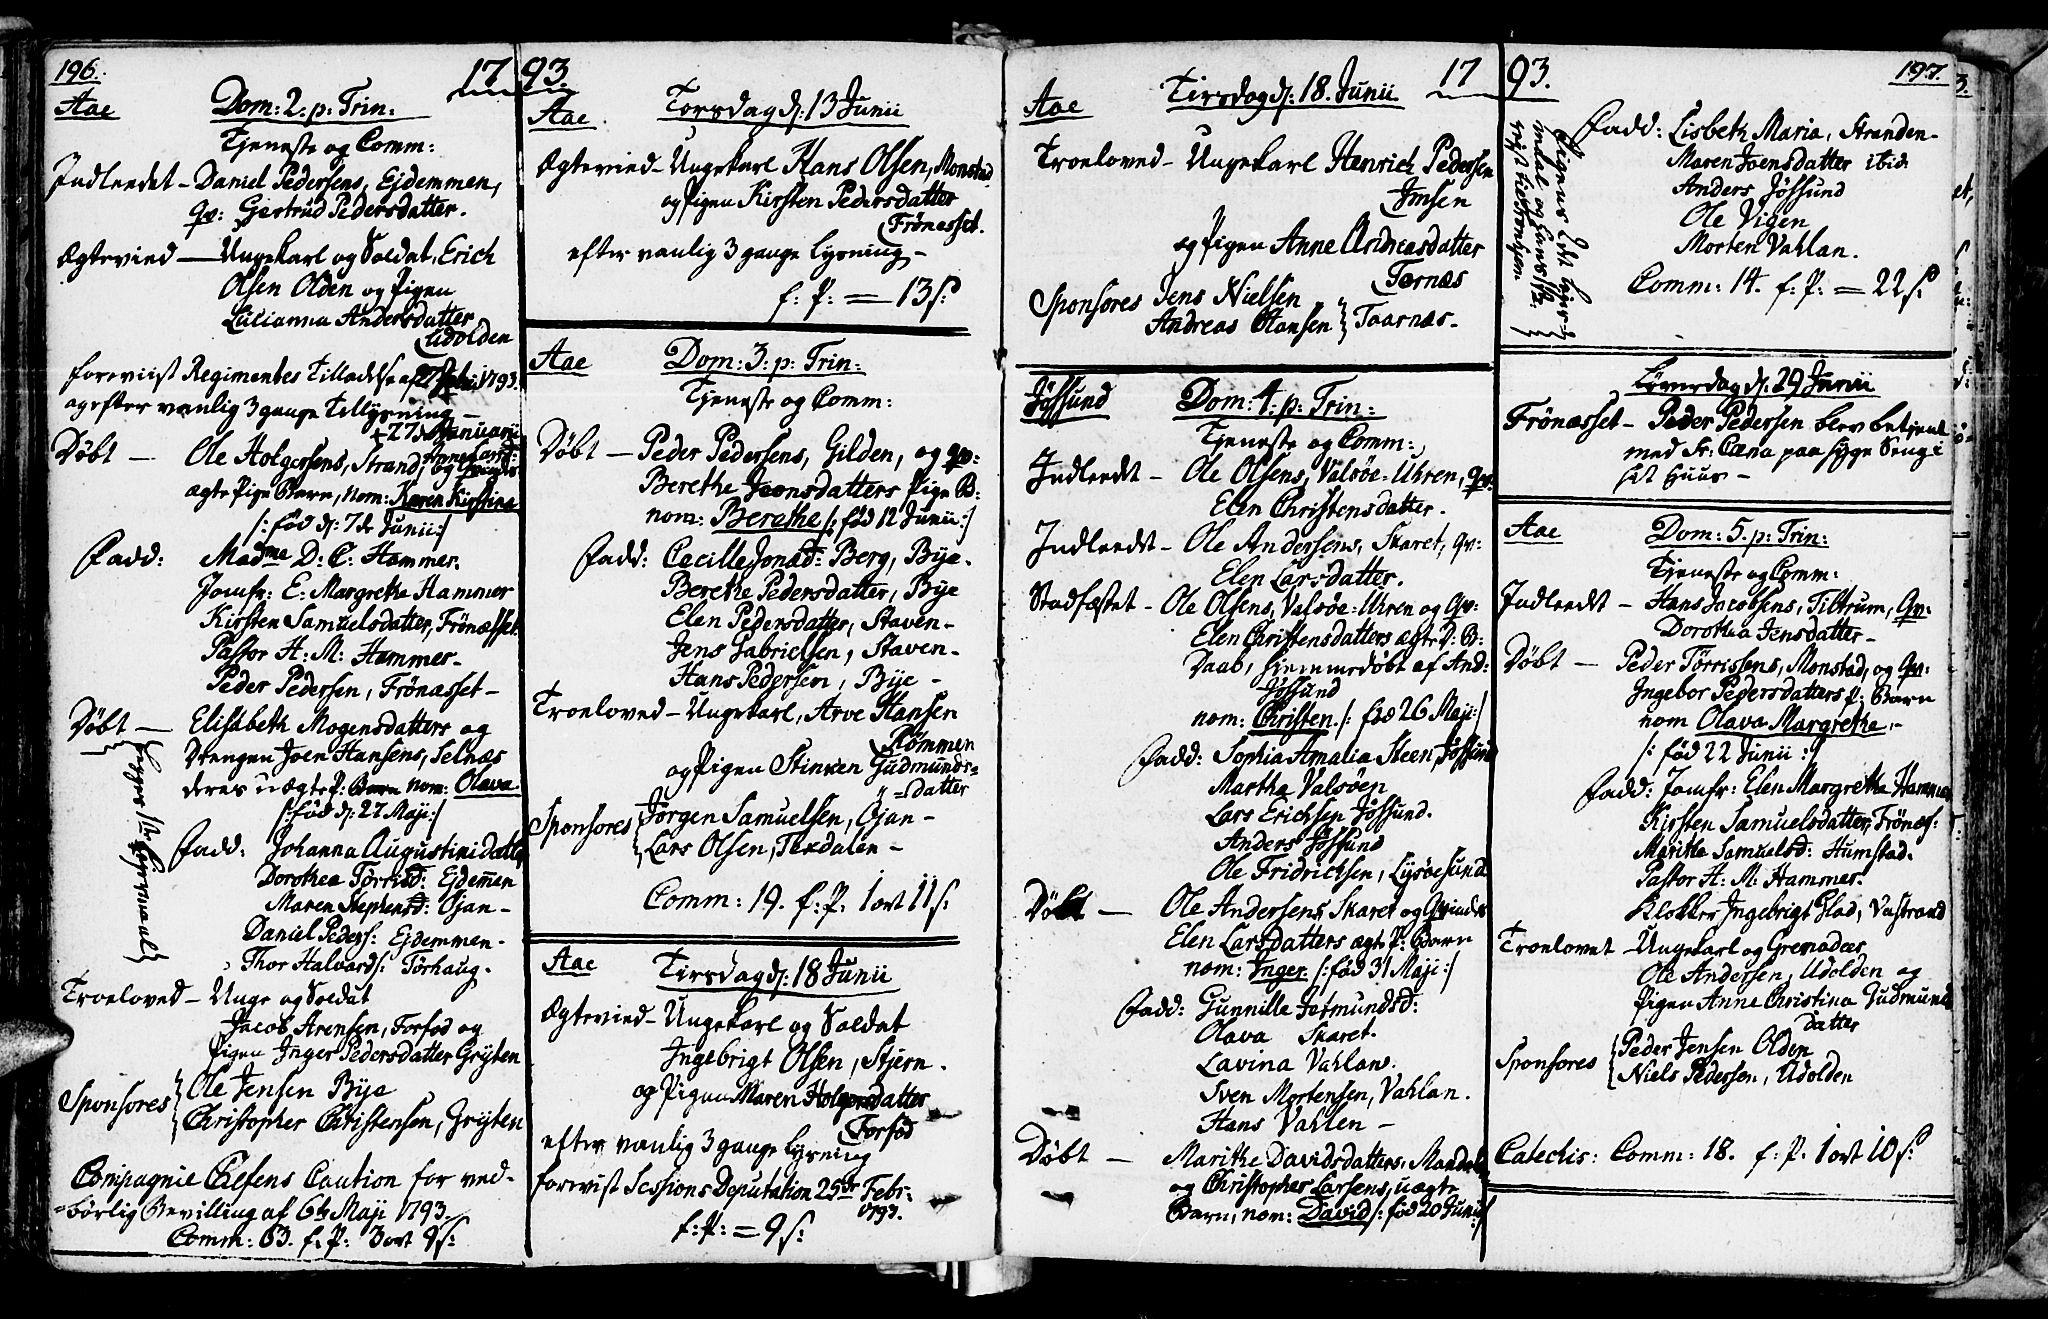 196.
17 93.
Aae Dom: 2. p: Trin:
Tjeneste og Comm:
Indleedt – Daniel Pedersens, Ejdemmen,
qv: Gjertrud Pedersdatter.
Ægtevied — Ungekarl og Soldat, Erich
Olsen Olden og Pigen
Lucianna Andersdatter
Udolden
foreviist Regimentes Tilladelse af 1793.
og efter vanlig 3 gange Tillysning —
+ 27 Januarii
Døbt — Ole Holgersens, Strand, og
ægte Pige Barn, nom: Karen Kirstina
/: fød d: 7de Junii :/
Fadd: Madme D: C: Hammer.
Jomfr: E: Margretha Hammer
Kirsten Samuelsdatter, Frönæsset.
Pastor H: M: Hammer –
Peder Pedersen, Frönæsset –
Døbt — Elisabeth Mogensdatters og
Drengen Joen Hansens, Selnæs
deres uægte P: Barn nom: Olava.
/: fød d: 27 Maji :/
Fadd: Johanna Augustinidatter
Dorothea Törrisd: Ejdemmen
Maren Stephensd: Ojan –
Daniel Peders: Ejdemmen –
Thor Halvards: Törhaug.
Troeloved – Unge og Soldat
Jacob Arensen, Forfod og
Pigen Inger Pedersdatter Gryten
Sponsores Ole Jensen Bye
Christopher Christensen, Gryten
Compagnie Chefens Caution for ved-
=börlig Bevilling af 6te Maji 1793.
Comm: 63. f: P: 3 ort 9 s:
Aae. Torsdag d: 13 Junii
Ægtevied – Ungekarl Hans Olsen, Monstad
og Pigen Kirsten Pedersdatter
Frönæsset.
efter vanlig 3 gange lysning –
f: P: = 13 s:
Aae Dom: 3: p: Trin:
Tjeneste og Comm:
Döbt — Peder Pedersens, Gilden, og qv:
Berethe Joensdatters Pige B:
nom: Berethe /: fød 12 Junii :/
Fadd: Cecille Jonæd: Berg, Bye.
Berethe Pedersdatter, Bye
Elen Pedersdatter, Staven –
Jens Gabrielsen, Staven –
Hans Pedersen, Bye –
Troeloved – Ungekarl, Arve Hansen
Römmen
og Pigen Stinken Gudmunds=
=datter
Sponsores Jørgen Samuelsen, Ojan –
Lars Olsen, Texdalen –
Comm: 19. f: P: 1 ort 11 s:
Aae Tirsdag d: 18 Junii
Ægtevied – Ungekarl og Soldat
Ingebrigt Olsen, Stjern.
og Pigen Maren Holgersdatter
Forfod
efter vanlig 3 gange lysning
foreviist Sessions Deputation 25de Febr:
1793.
f: P: = 9 s:
17 93.
197.
Aae Tirsdag d: 18. Junii
Troeloved – Ungekarl Henrich Pedersen
Imsen
og Pigen Anne Andreasdatter
Tornæs
Sponsores Jens Nielsen
Andreas Hansen Taarnæs –
Jössund Dom: 4: p: Trin:
Tjeneste og Comm:
Indleedt – Ole Olsens, Valsöe-Uhren, qv:
Elen Christensdatter.
Indleedt – Ole Andersens, Skaret, qv:
Elen Larsdatter.
Stadfæstet – Ole Olsens, Valsöe-Uhren og qv:
Elen Christensdatters ægte D: B:
Daab, hjemmedöbt af And:
Jössund
nom: Christen. /: fød 26 Maji :/
Fadd: Sophia Amalia Steen, Jössund
Martha Valsöen
Lars Erichsen Jössund.
Anders Jössund
Ole Fridrichsen, Lysöesund
Døbt — Ole Andersens Skaret og Qvindes
Elen Larsdatters ægte P: Barn
nom: Inger. /: fød 31 Maji :/
Fadd: Gunnille Jetmundsd:
Olava Skaret.
Lavina Vahlan.
Sven Mortensen, Vahlan.
Hans Vahlen –
Døbt — Marithe Davidsdatters, Mandal
og Christopher Larsens, uægte
Barn, nom: David /: fød 20 Junii :/
Fadd: Lisbeth Maria, Stranden –
Maren Joensdatter ibid:
Anders Jössund
Ole Vigen
Morten Vahlan.
Comm: 14. f: P: = 22 s:
Löverdag d: 29 Junii
Frönæsset – Peder Pedersen blev betjent
med Sr: Cæna paa syge Seng i
sit Huus –
Aae Dom: 5. p: Trin:
Tjeneste og Comm:
Indleedt – Hans Jacobsens, Tiltrum, Qv:
Dorothea Jensdatter –
Døbt — Peder Törrissens, Monstad, og Qv:
Ingebor Pedersdatters P: Barn
nom Olava Margrethe –
/: fød 22 Junii :/
Fadd: Jomfr: Elen Margretha Hammer
Kirsten Samuelsdatter, Frönæs:
Marithe Samuelsd: Humstad.
Pastor H: M: Hammer.
Klokker Ingebrigt Blad, Vastrand
Troelovet – Ungekarl og Grenadeer
Ole Andersen, Udolden og
Pigen Anne Christina Gudmunds
datter
Sponsores Peder Jensen Olden
Niels Pedersen, Udolden
Catechis: Comm: 18. f: P. 1 ort 10 s: